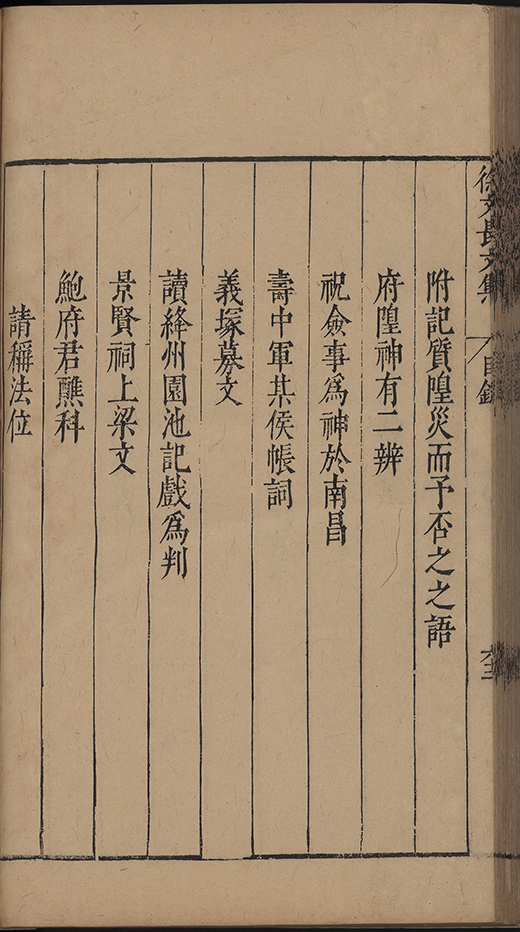 徐文長文集 目錄 六十二
附記質隍災而予否之之語
府隍神有二辨
祝僉事為神於南昌
壽中軍某侯帳詞
義塚募文
讀絳州園池記戲爲判
景賢祠上梁文
鮑府君醮科
請稱法位